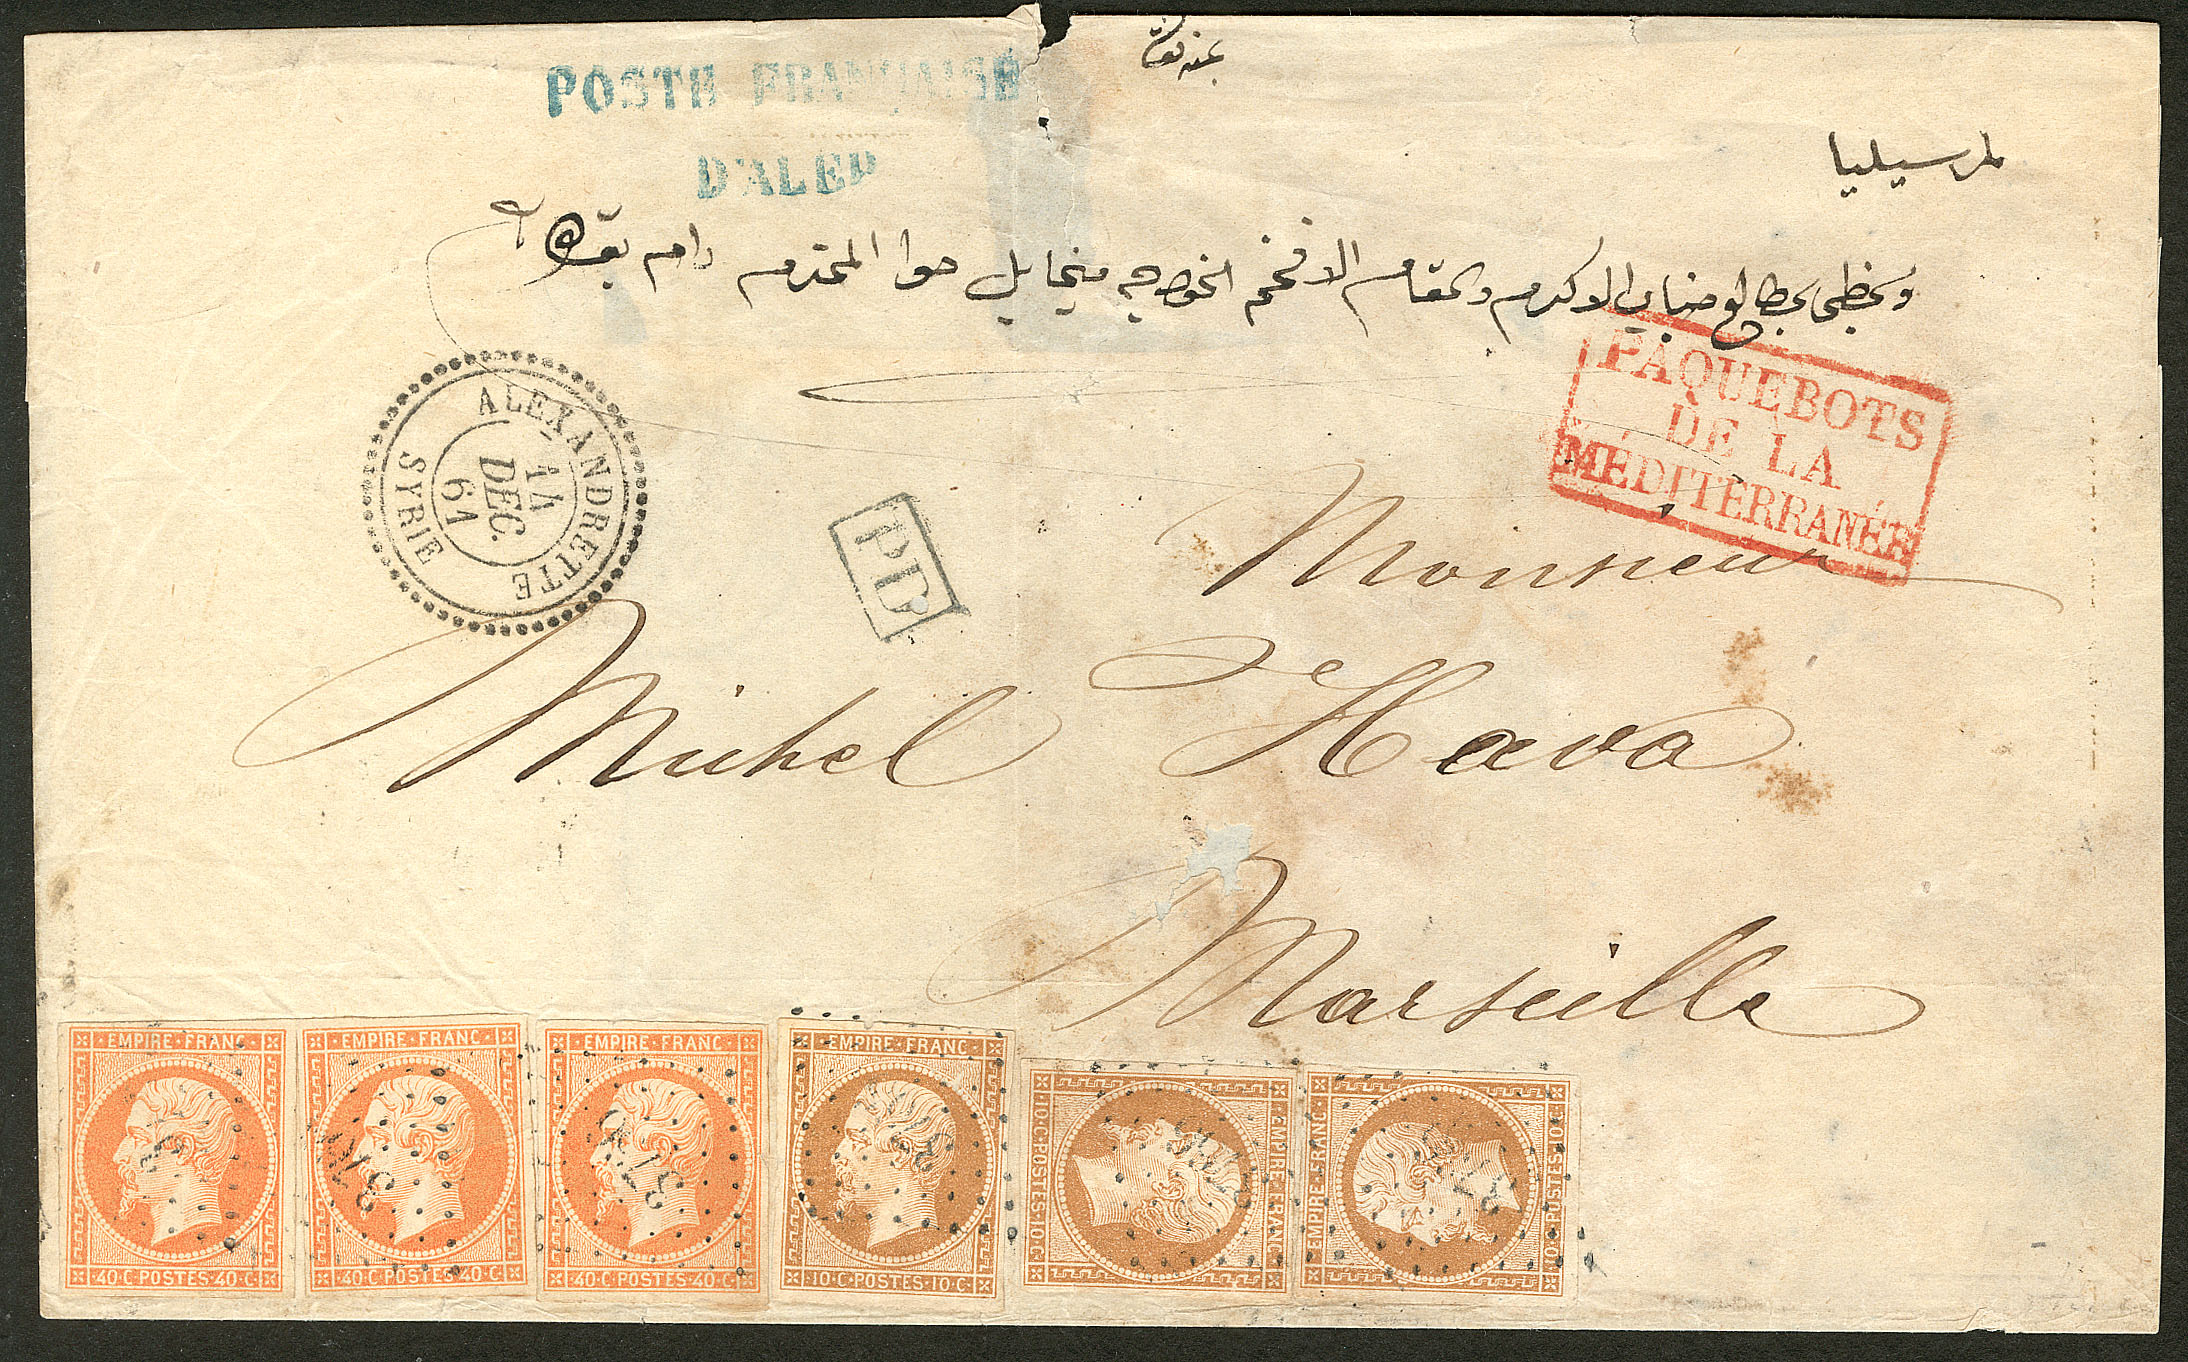 بمنه تعالى
POSTE FRANÇAISE
D'ALEP
لمرسيليا
ويحظى بمطالع جناب الاكرم والمقام الافخم الخواجه ميخايل حوا المحترم دام بقاه
PAQUEBOTS
DE LA
MÉDITERRANÉE
ALEXANDRETTE
14
DEC.
61
SYRIE
PD
Monsieur
Michel Hava
Marseille
EMPIRE·FRANC
40·C·POSTES·40·C
EMPIRE·FRANC
40·C·POSTES·40·C
3766
EMPIRE·FRANC
40·C·POSTES·40·C
3766
EMPIRE·FRANC
10·C·POSTES·10·C
EMPIRE·FRANC
10·C·POSTES·10·C
EMPIRE·FRANC
10·POSTES·10·C